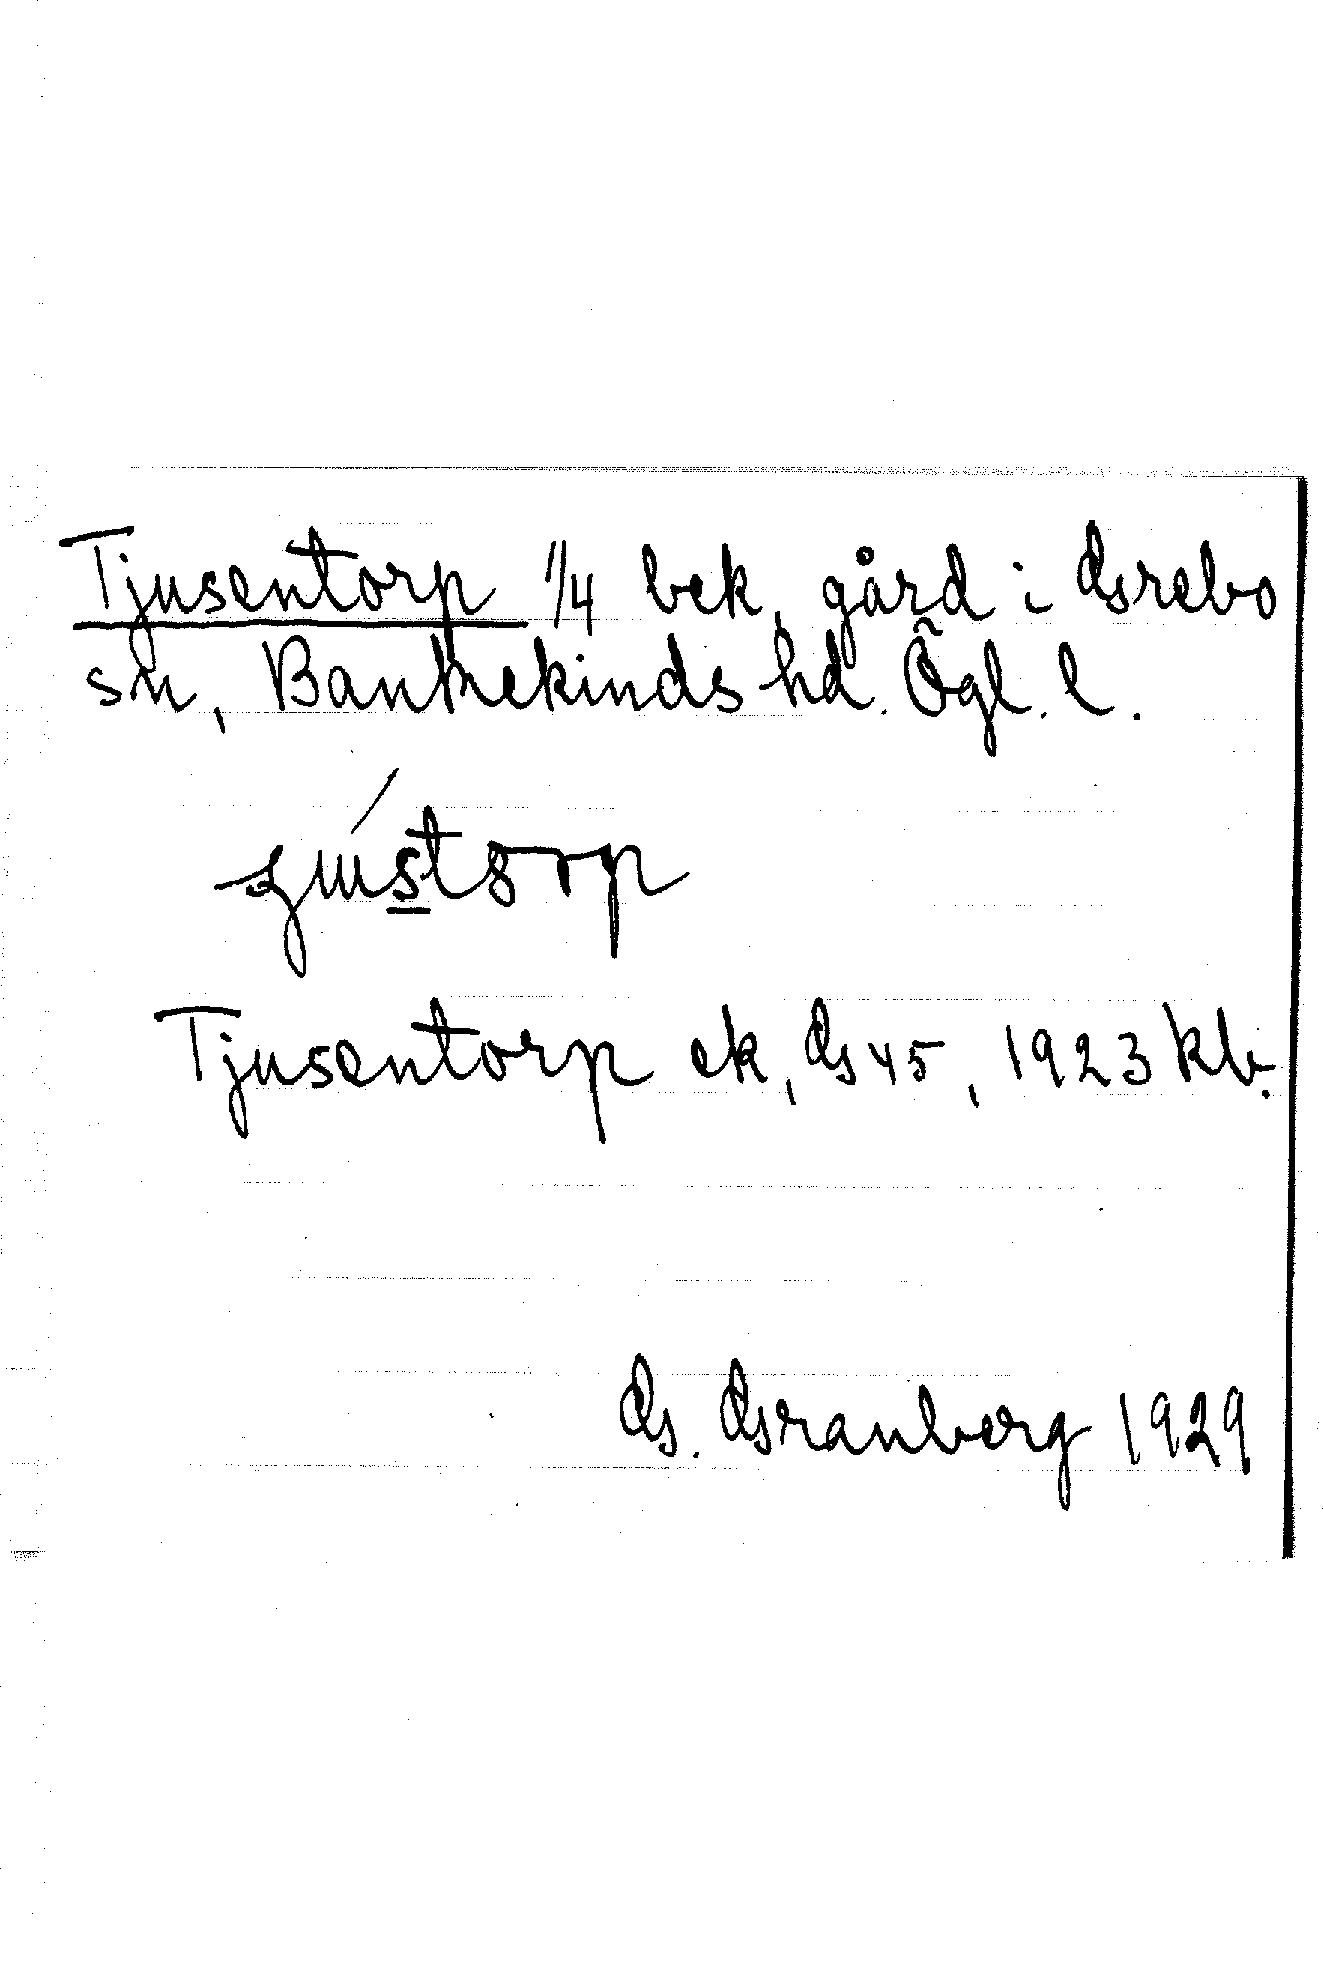 Tjusentorp 1/4 bek, gård i Grebo
sn, Bankekinds hd. Ögl. l.
Tjusentorp ek, GS 45, 1923 kb.
G. Granberg 1929